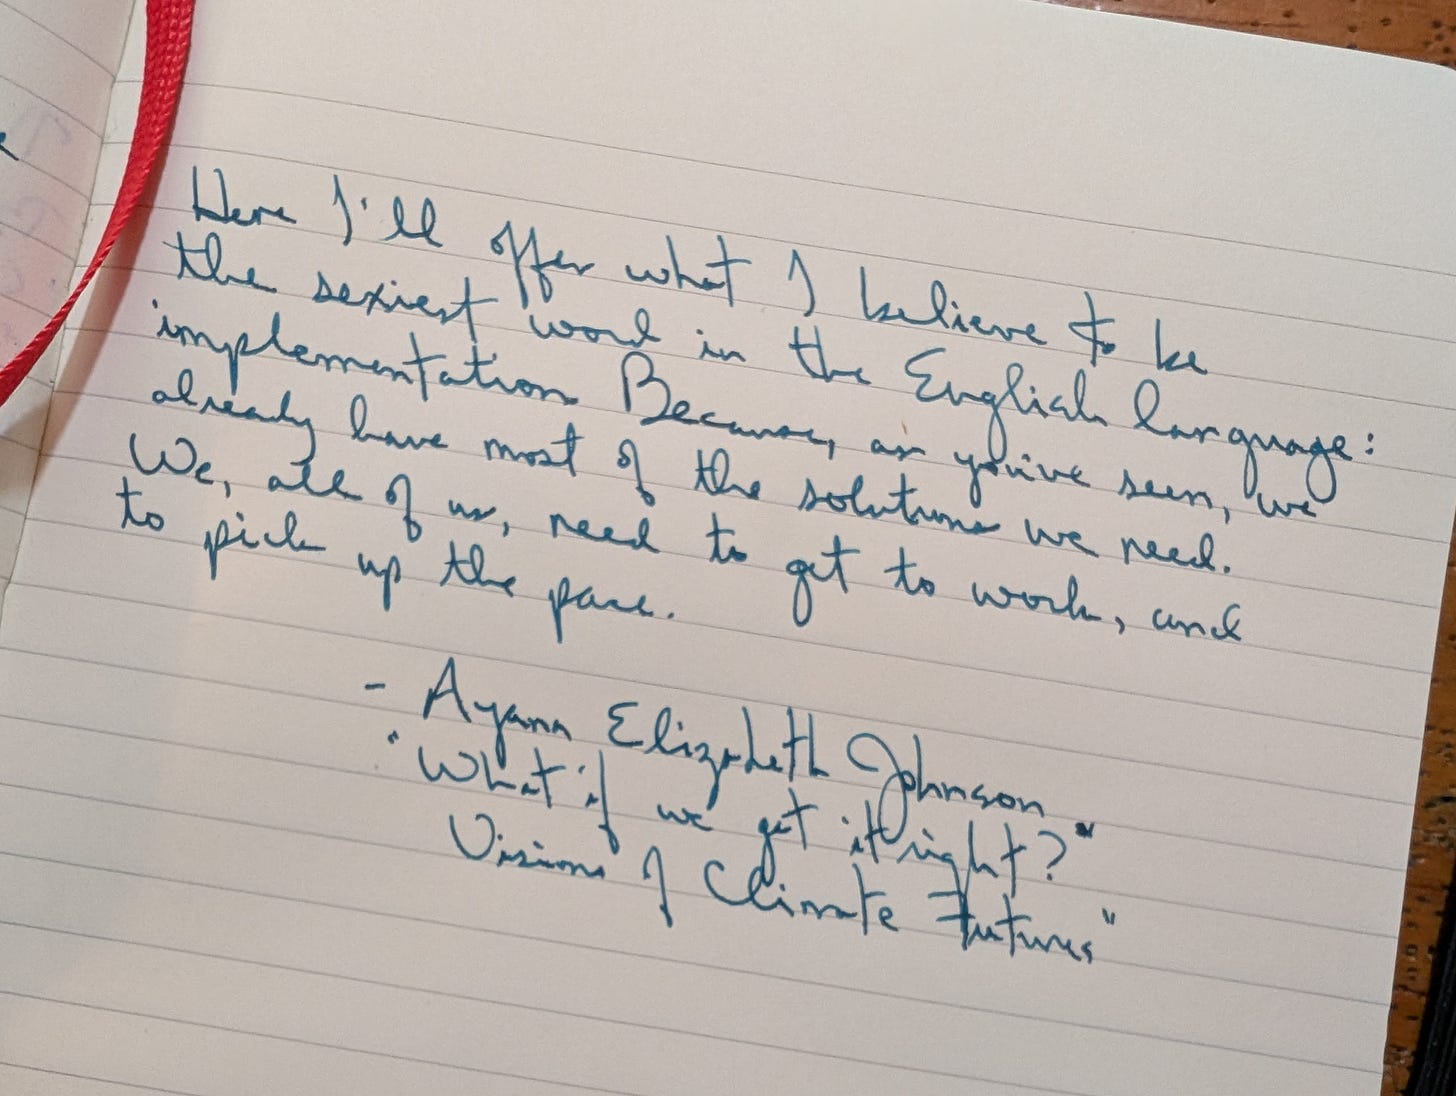 Here I'll offer what I believe to be
the sexiest word in the English language:
implementation Because, as you've seen, we
already have most of the solutions we need.
We, all of us, need to get to work, and
to pick up the pace.
- Ayana Elizabeth Johnson
"What if we get it right?"
Visions of Climate Futures"